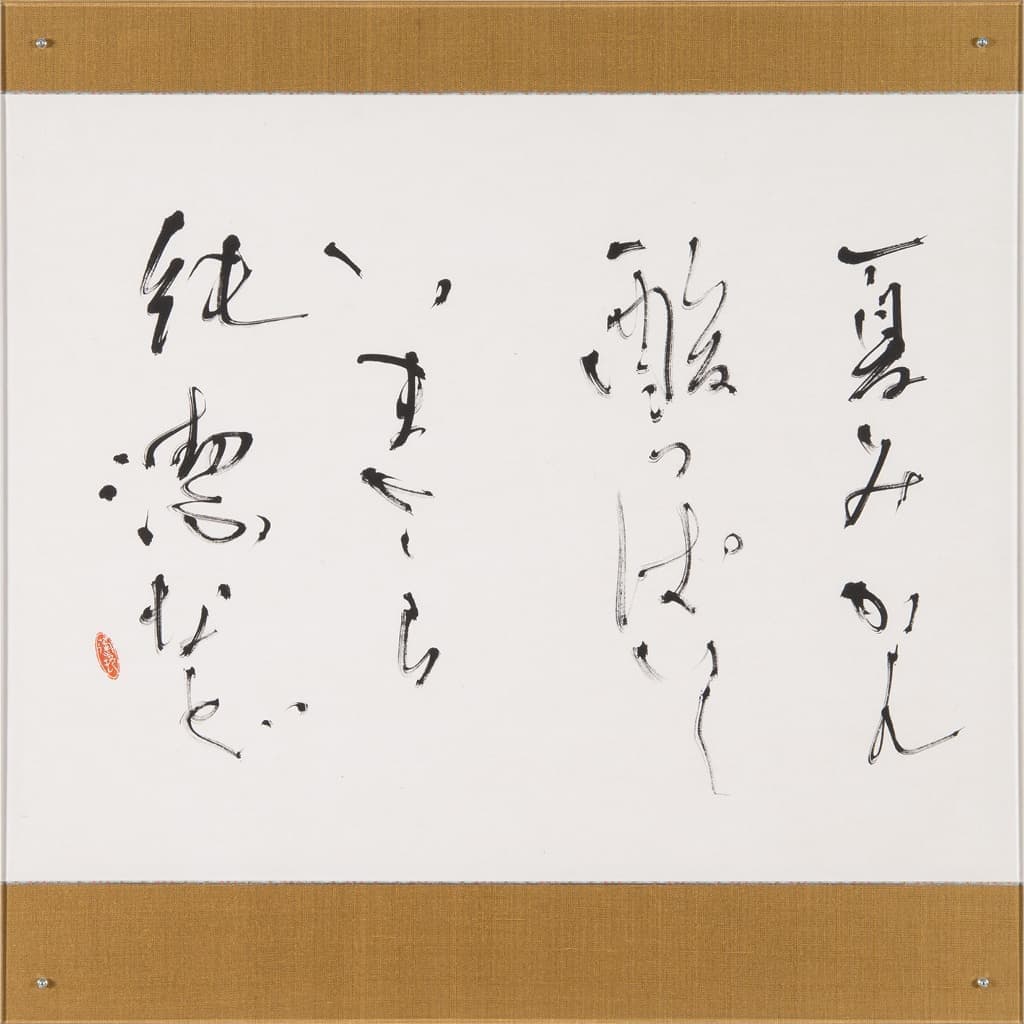 夏みかん
酸っぱい
いまさら
純潔など